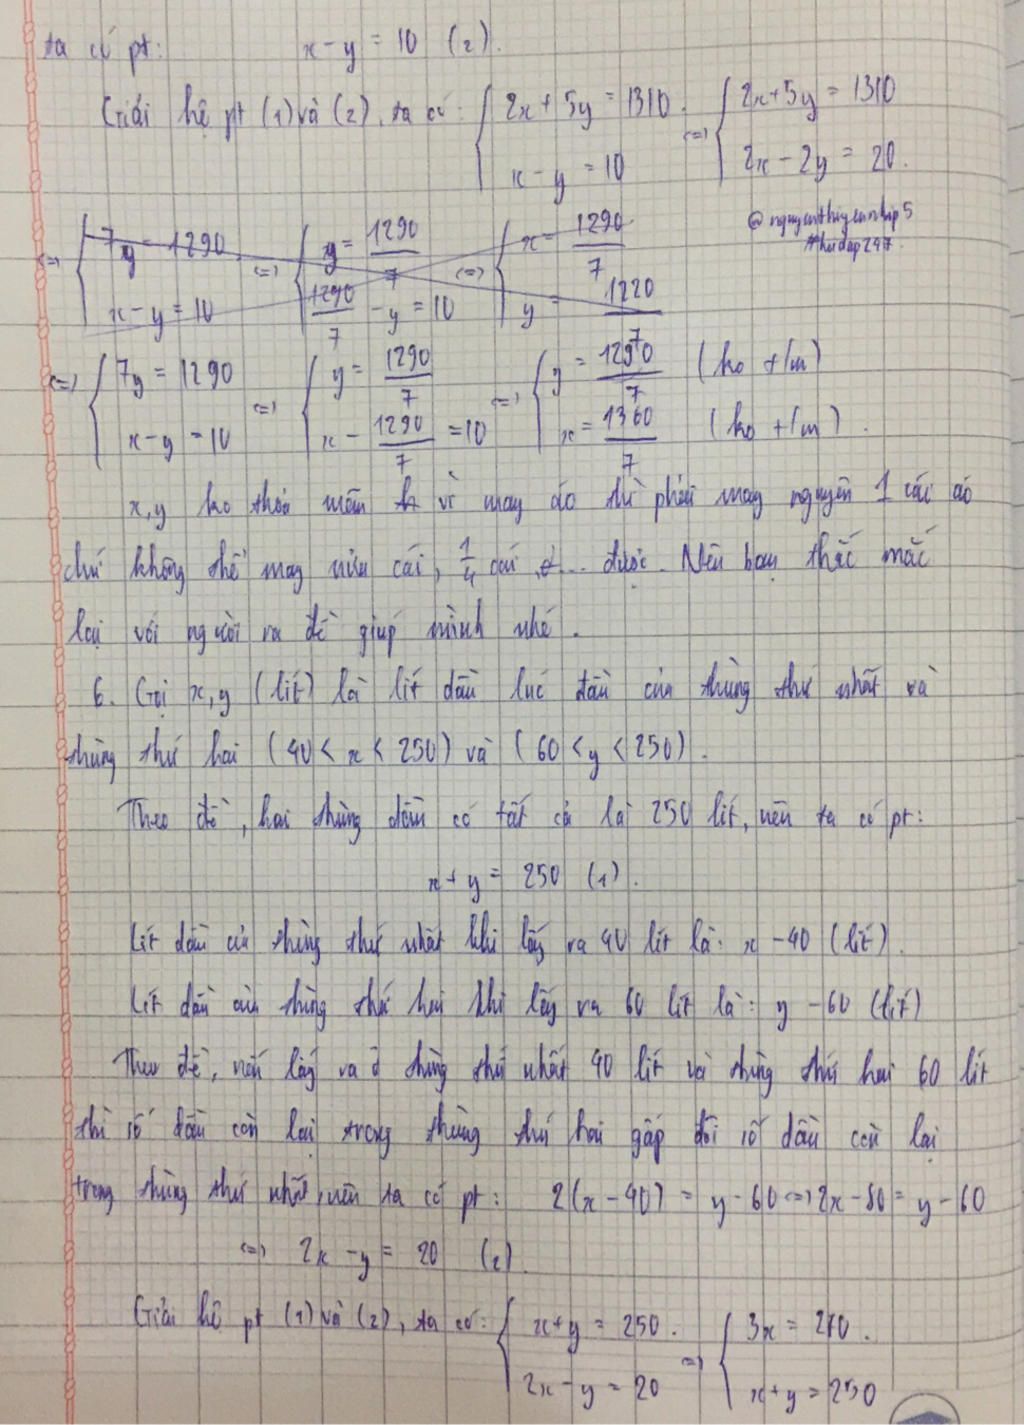 ta có pt: x - y = 10 (2).
Giải hệ pt (1) và (2), ta có: { 2x + 5y = 1310. <=> { 2x + 5y = 1310
x - y = 10 2x - 2y = 20.
@nguyenthiyenndip5
#hoidap247
<=> { 7y = 1290 <=> { y = 1290/7 <=> { x = 1290/7
x - y = 10 1290/7 - y = 10 y = 1220/7
<=> { 7y = 1290 <=> { y = 1290/7 <=> { y = 1290/7 (ko t/m)
x - y = 10 x - 1290/7 = 10 x = 1360/7 (ko t/m).
x, y ko thỏa mãn vì may áo thì phải may nguyên 1 cái áo
chứ không thể may nửa cái, 1/4 cái, ... được. Nếu bạn thắc mắc
lại với người ra đề giúp mình nhé.
6. Gọi x, y (lít) là lít dầu lúc đầu của thùng thứ nhất và
thùng thứ hai (40 < x < 250) và (60 < y < 250).
Theo đề, hai thùng dầu có tất cả là 250 lít, nên ta có pt:
x + y = 250 (1).
Lít dầu của thùng thứ nhất khi lấy ra 40 lít là: x - 40 (lít).
Lít dầu của thùng thứ hai khi lấy ra 60 lít là: y - 60 (lít)
Theo đề, nếu lấy ra ở thùng thứ nhất 40 lít và thùng thứ hai 60 lít
thì số dầu còn lại trong thùng thứ hai gấp đôi số dầu còn lại
trong thùng thứ nhất, nên ta có pt: 2(x - 40) = y - 60 <=> 2x - 80 = y - 60
<=> 2x - y = 20 (2).
Giải hệ pt (1) và (2), ta có: { x + y = 250. <=> { 3x = 270.
2x - y = 20 x + y = 250